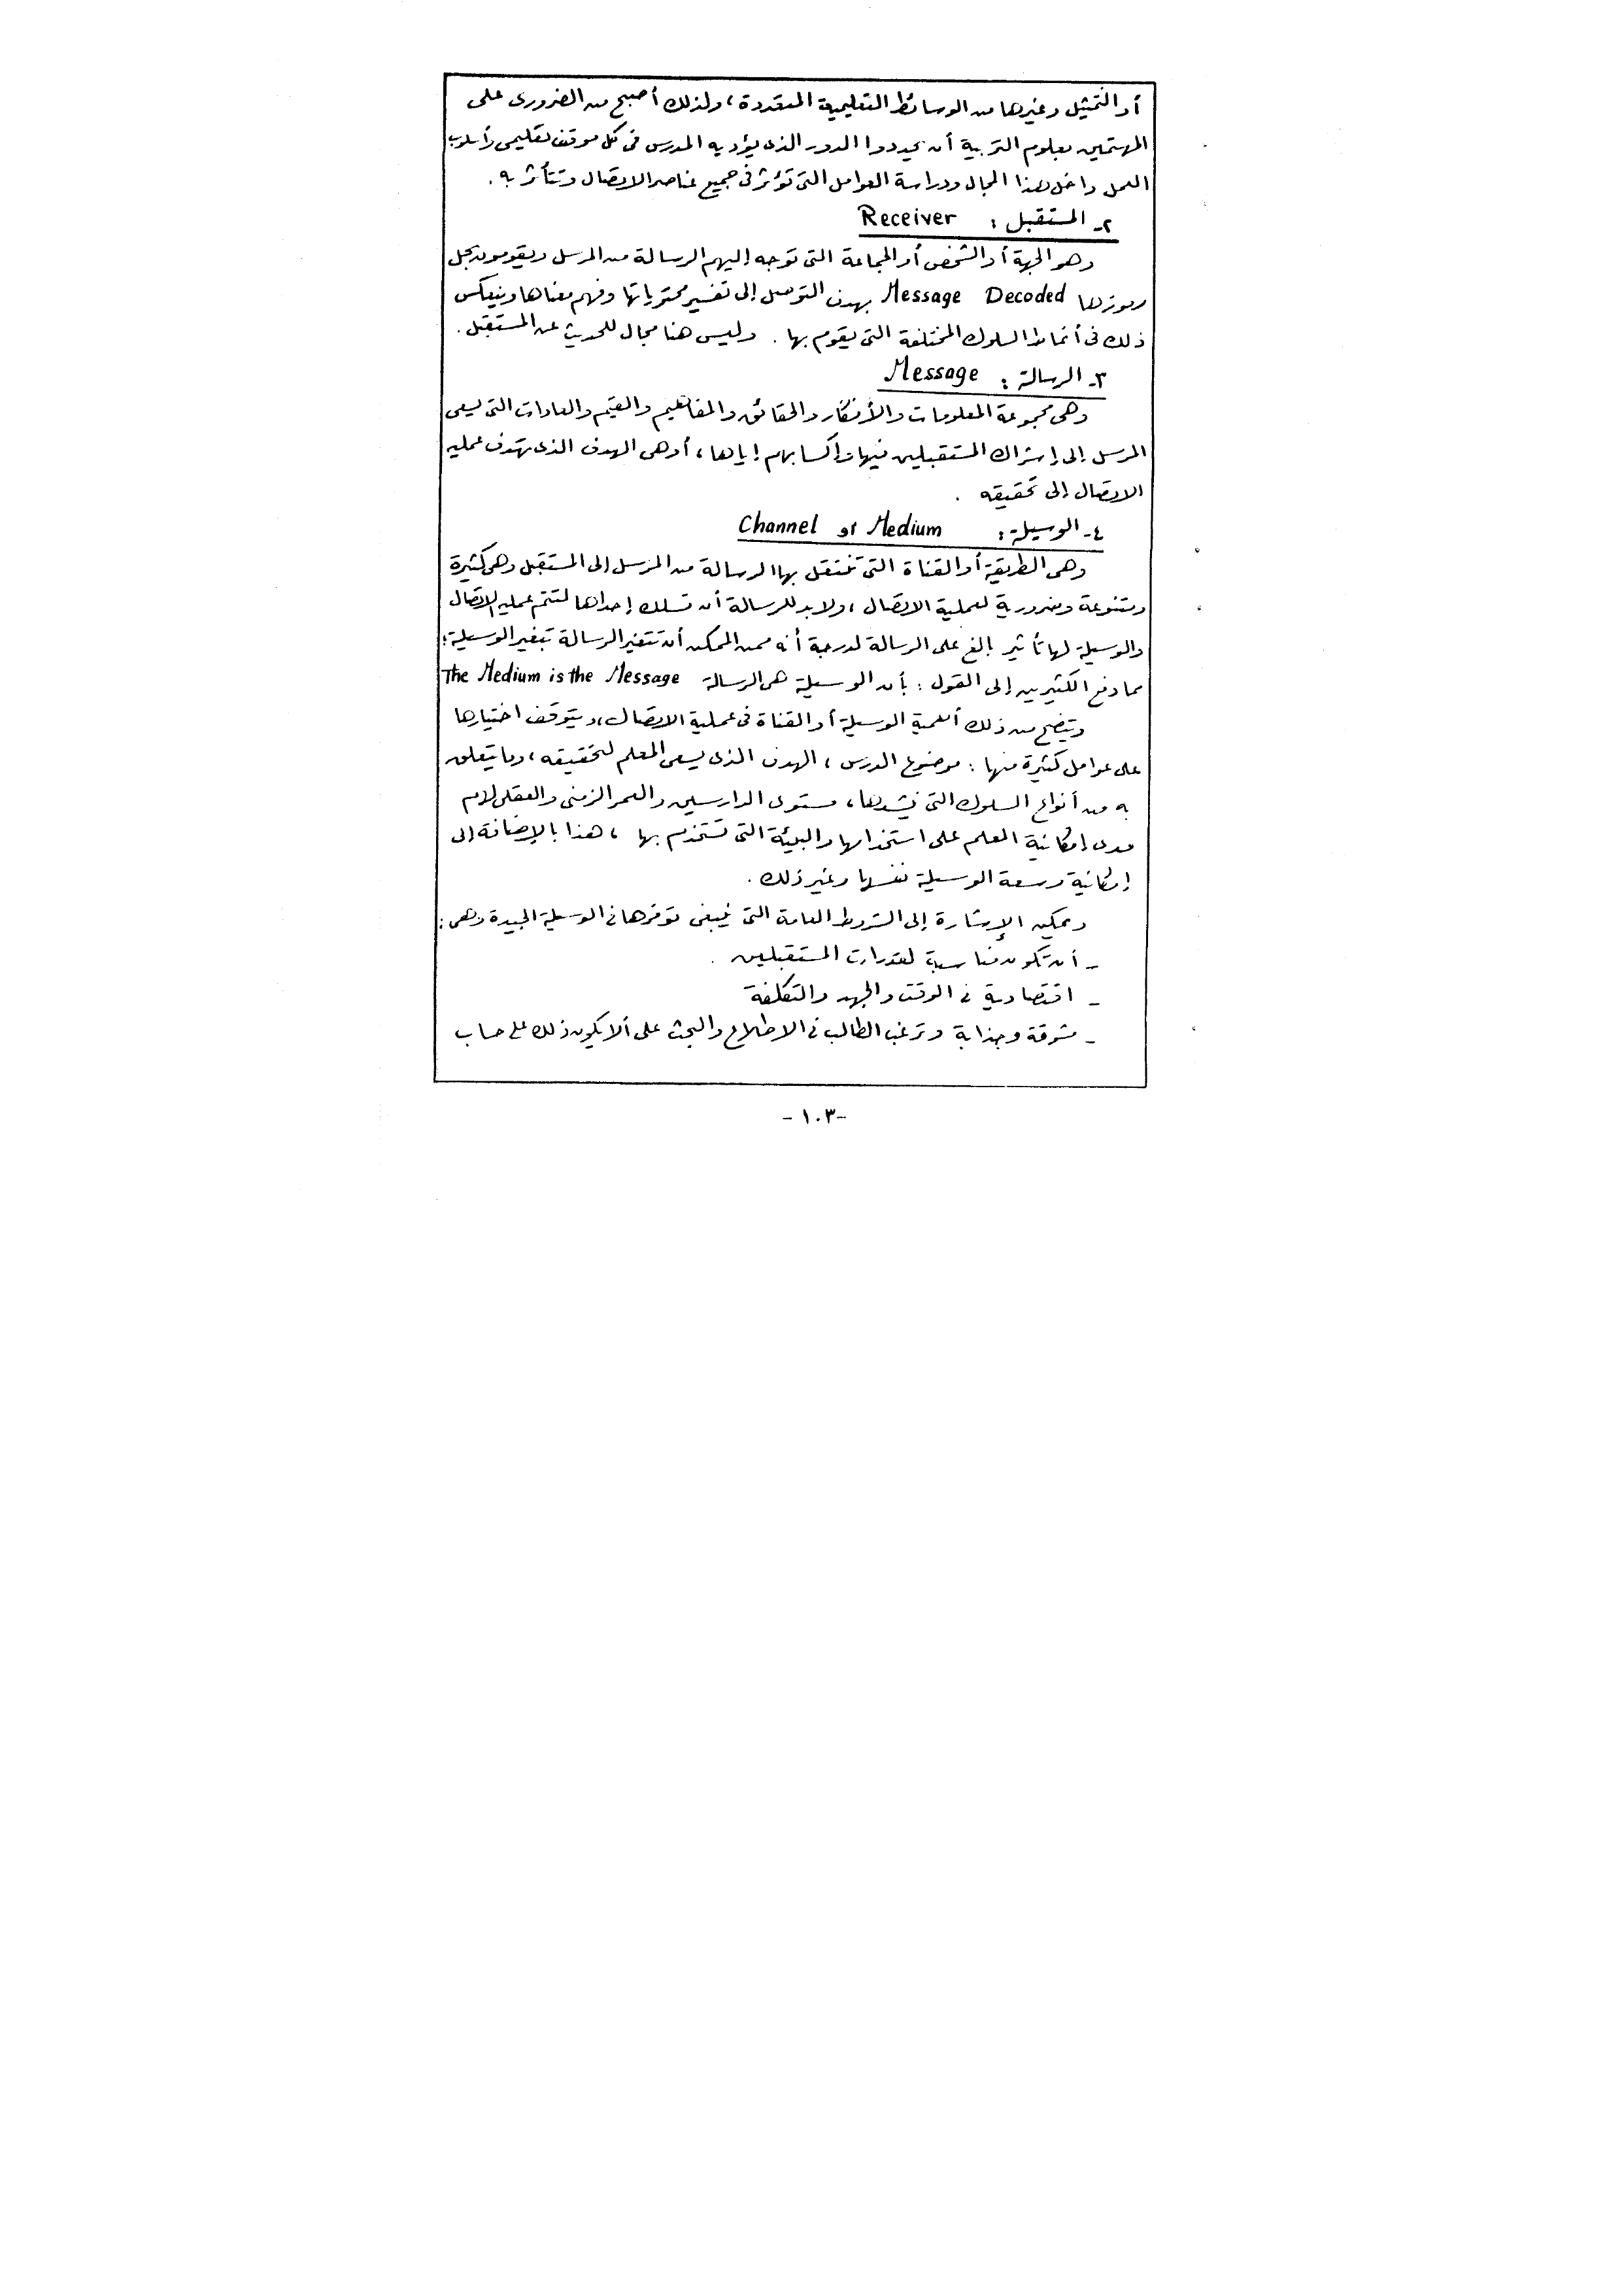 أو التمثيل وغيرها من الوسائط التعليمية المتعددة، ولذلك أصبح من الضروري على
المهتمين بعلوم التربية أن يحددوا الدور الذى يؤديه المدرس فى كل موقف تعليمى وأسلوب
العمل داخل هذا المجال ودراسة العوامل التى تؤثر فى جميع عناصر الاتصال وتتأثر به .
٢- المستقبل : Receiver
وهو الجهة أو الشخص أو الجماعة التى توجه إليهم الرسالة من المرسل ويقومون بحل
رموزها Message Decoded بهدف التوصل إلى تفسير محتوياتها وفهم معناها وينعكس
ذلك فى أنماط السلوك المختلفة التى يقوم بها . وليس هنا مجال للحديث عن المستقبل .
٣- الرسالة : Message
وهى مجموعة المعلومات والأفكار والحقائق والمفاهيم والقيم والعادات التى يسعى
المرسل إلى إشراك المستقبلين فيها وإكسابهم إياها ، أو هى الهدف الذى تهدف عملية
الاتصال إلى تحقيقه .
٤- الوسيلة : Channel or Medium
وهى الطريقة أو القناة التى تنتقل بها الرسالة من المرسل إلى المستقبل وهى كثيرة
ومتنوعة وضرورية لعملية الاتصال ، ولابد للرسالة أن تسلك إحداها لتتم عملية الاتصال
والوسيلة لها تأثير بالغ على الرسالة لدرجة أنه من الممكن أن تتغير الرسالة بتغير الوسيلة؛
مما دفع الكثيرين إلى القول : بأن الوسيلة هى الرسالة The Medium is the Message
ويتضح من ذلك أهمية الوسيلة أو القناة فى عملية الاتصال، ويتوقف اختيارها
على عوامل كثيرة منها : موضوع الدرس ، الهدف الذى يسعى المعلم لتحقيقه ، وما يتعلق
به من أنواع السلوك التى ينشدها ، مستوى الدارسين والعمر الزمنى والعقلى لهم
مدى إمكانية المعلم على استخدامها والبيئة التى تستخدم بها ، هذا بالإضافة إلى
إمكانية وسعة الوسيلة نفسها وغير ذلك .
ويمكن الإشارة إلى الشروط العامة التى ينبغى توفرها فى الوسيلة الجيدة وهى :
- أن تكون مناسبة لقدرات المستقبلين .
- اقتصادية فى الوقت والجهد والتكلفة
- مشوقة وجذابة وترغب الطالب فى الاطلاع والبحث على ألا يكون ذلك على حساب
-١٠٣-